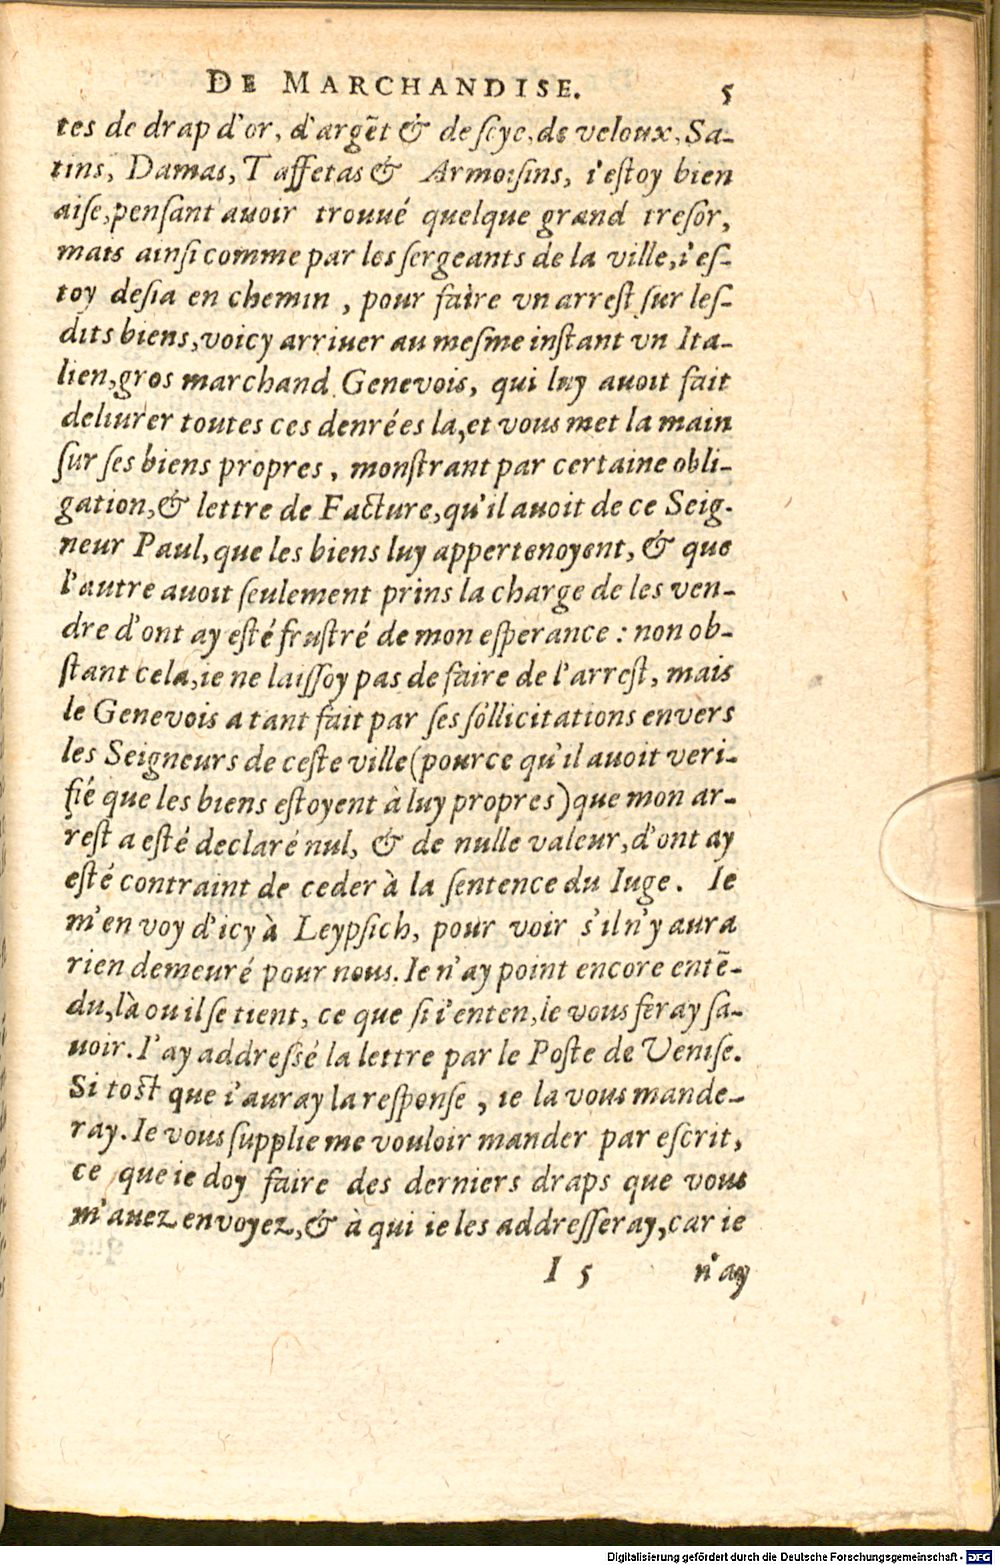 DE MARCHANDISE. 5
tes de drap d'or, d'argẽt & de soye, de veloux, Sa-
tins, Damas, Taffetas & Armoisins, i'estoy bien
aise, pensant auoir trouué quelque grand tresor,
mais ainsi comme par les sergeants de la ville, i'es-
toy desia en chemin, pour faire vn arrest sur les-
dits biens, voicy arriuer au mesme instant vn Ita-
lien, gros marchand Genevois, qui luy auoit fait
deliurer toutes ces denrées la, et vous met la main
sur ses biens propres, monstrant par certaine obli-
gation, & lettre de Facture, qu'il auoit de ce Seig-
neur Paul, que les biens luy appertenoyent, & que
l'autre auoit seulement prins la charge de les ven-
dre d'ont ay esté frustré de mon esperance : non ob-
stant cela, ie ne laissoy pas de faire de l'arrest, mais
le Genevois a tant fait par ses sollicitations envers
les Seigneurs de ceste ville (pource qu'il auoit veri-
fié que les biens estoyent à luy propres) que mon ar-
rest a esté declaré nul, & de nulle valeur, d'ont ay
esté contraint de ceder à la sentence du Iuge. Ie
m'en voy d'icy à Leypsich, pour voir s'il n'y aura
rien demeuré pour nous. Ie n'ay point encore entẽ-
du, là ou il se tient, ce que si i'enten, ie vous feray sa-
uoir. I'ay addressé la lettre par le Poste de Venise.
Si tost que i'auray la response, ie la vous mande-
ray. Ie vous supplie me vouloir mander par escrit,
ce que ie doy faire des derniers draps que vous
m'auez envoyez, & à qui ie les addresseray, car ie
I 5 n'ay
Digitalisierung gefördert durch die Deutsche Forschungsgemeinschaft - DFG